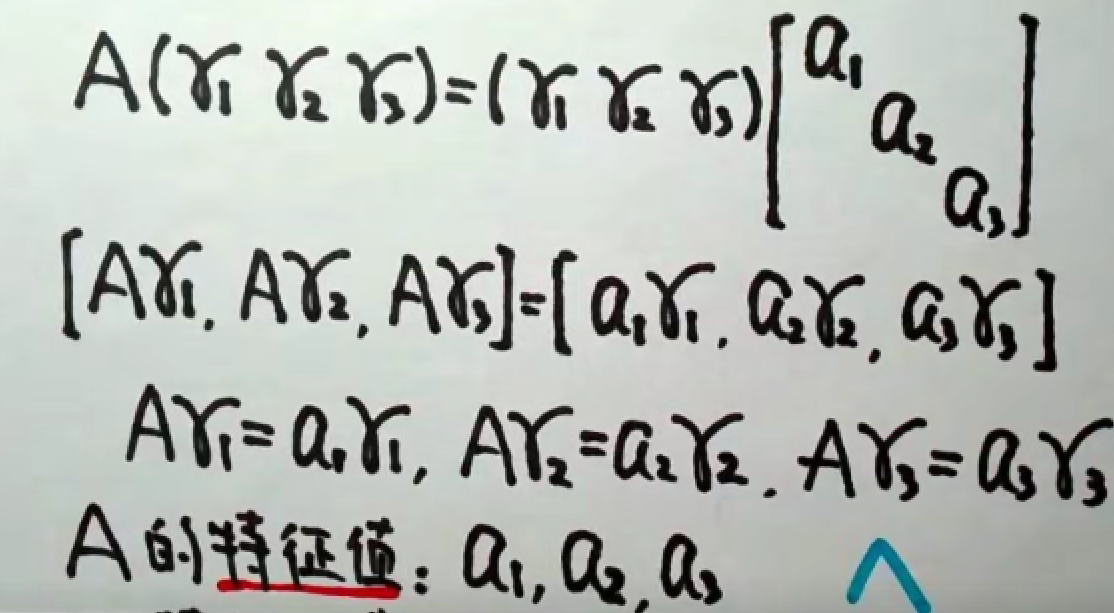 A(γ₁ γ₂ γ₃)=(γ₁ γ₂ γ₃)[a₁ a₂ a₃]
[Aγ₁, Aγ₂, Aγ₃]=[a₁γ₁, a₂γ₂, a₃γ₃]
Aγ₁=a₁γ₁, Aγ₂=a₂γ₂. Aγ₃=a₃γ₃
A的特征值: a₁, a₂, a₃ Λ